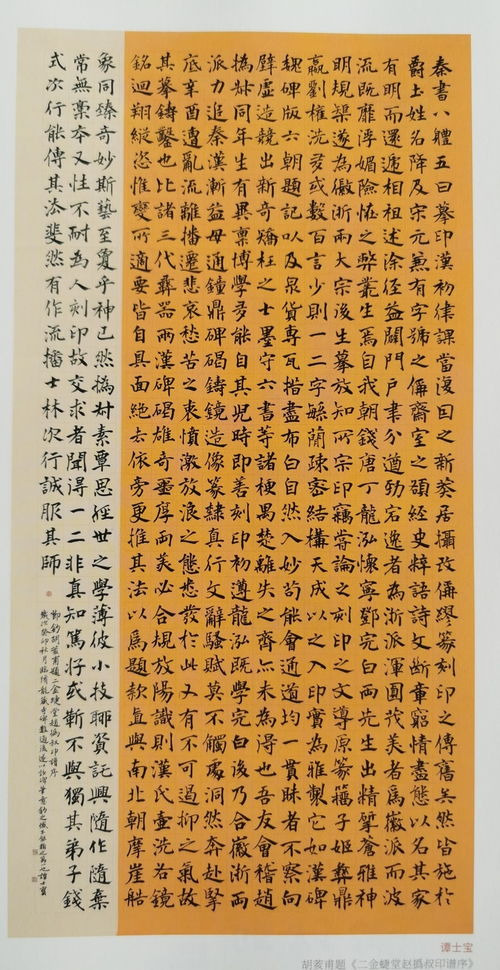 秦書八體五曰摹印漢初律課當復因之新莽居攝改備繆篆刻印之傳舊矣然皆施於
爵土姓名降及宋元兼有字號之備齋室之頌經史粹語詩文斷章窮情盡態以名其家
有明而還遞相祖述涂徑益闢門戶聿分遒勁宕逸者為浙派渾圓茂美者為徽派而波
流既靡浮媚險怪之弊叢生焉自我朝錢唐丁龍泓懷寧鄧完白兩先生出精擘倉雅神
明規榘遂為徽浙兩大宗後生摹放知所宗印竊嘗論之刻印之文導原篆籀子姬彝鼎
嬴劉權洗多或數百言少則一二字緜蘭疎密結構天成以之入印實為雅製它如漢碑
魏碑版六朝題記以及泉貨專瓦揩畫布白自然入妙苟能會通道均一貫昧者不察向
壁虛造競出新奇矯枉之士墨守六書等諸梗禺楚離失之齊亦未為得也吾友會稽趙
撝叔同年生有異稟博學多能自其兒時即善刻印初遵龍泓既學完白後乃合徽浙兩
派力追秦漢漸益毌通鐘鼎碑碣鑄鏡造像篆隸真行文辭騷賦莫不觸處洞然奔赴擥
底辛酉遭亂流離播遷悲哀愁苦之衷憤激放浪之態悉發於此又有不可遏抑之氣故
其摹鑄鑿也比諸三代彝器兩漢碑碣雄奇璽厚兩美必合規放陽識則漢氏壺洗若鏡
銘迴翔縱恣惟變所適要皆自具面絕去依旁更推其法以為題款直與南北朝摩崖船
象同臻奇妙斯藝至夐乎神已然撝叔素覃思經世之學薄彼小技聊資託興隨作隨棄
常無稾本又性不耐為人刻印故交求者聞得一二非真知篤好或靳不與獨其弟子錢
式次行能傳其法斐然有作流播士林次行誠服其師
鄞鈞胡荄甫題二金蜨堂趙撝叔印譜序
谭士宝
胡荄甫题《二金蜨堂赵撝叔印谱序》